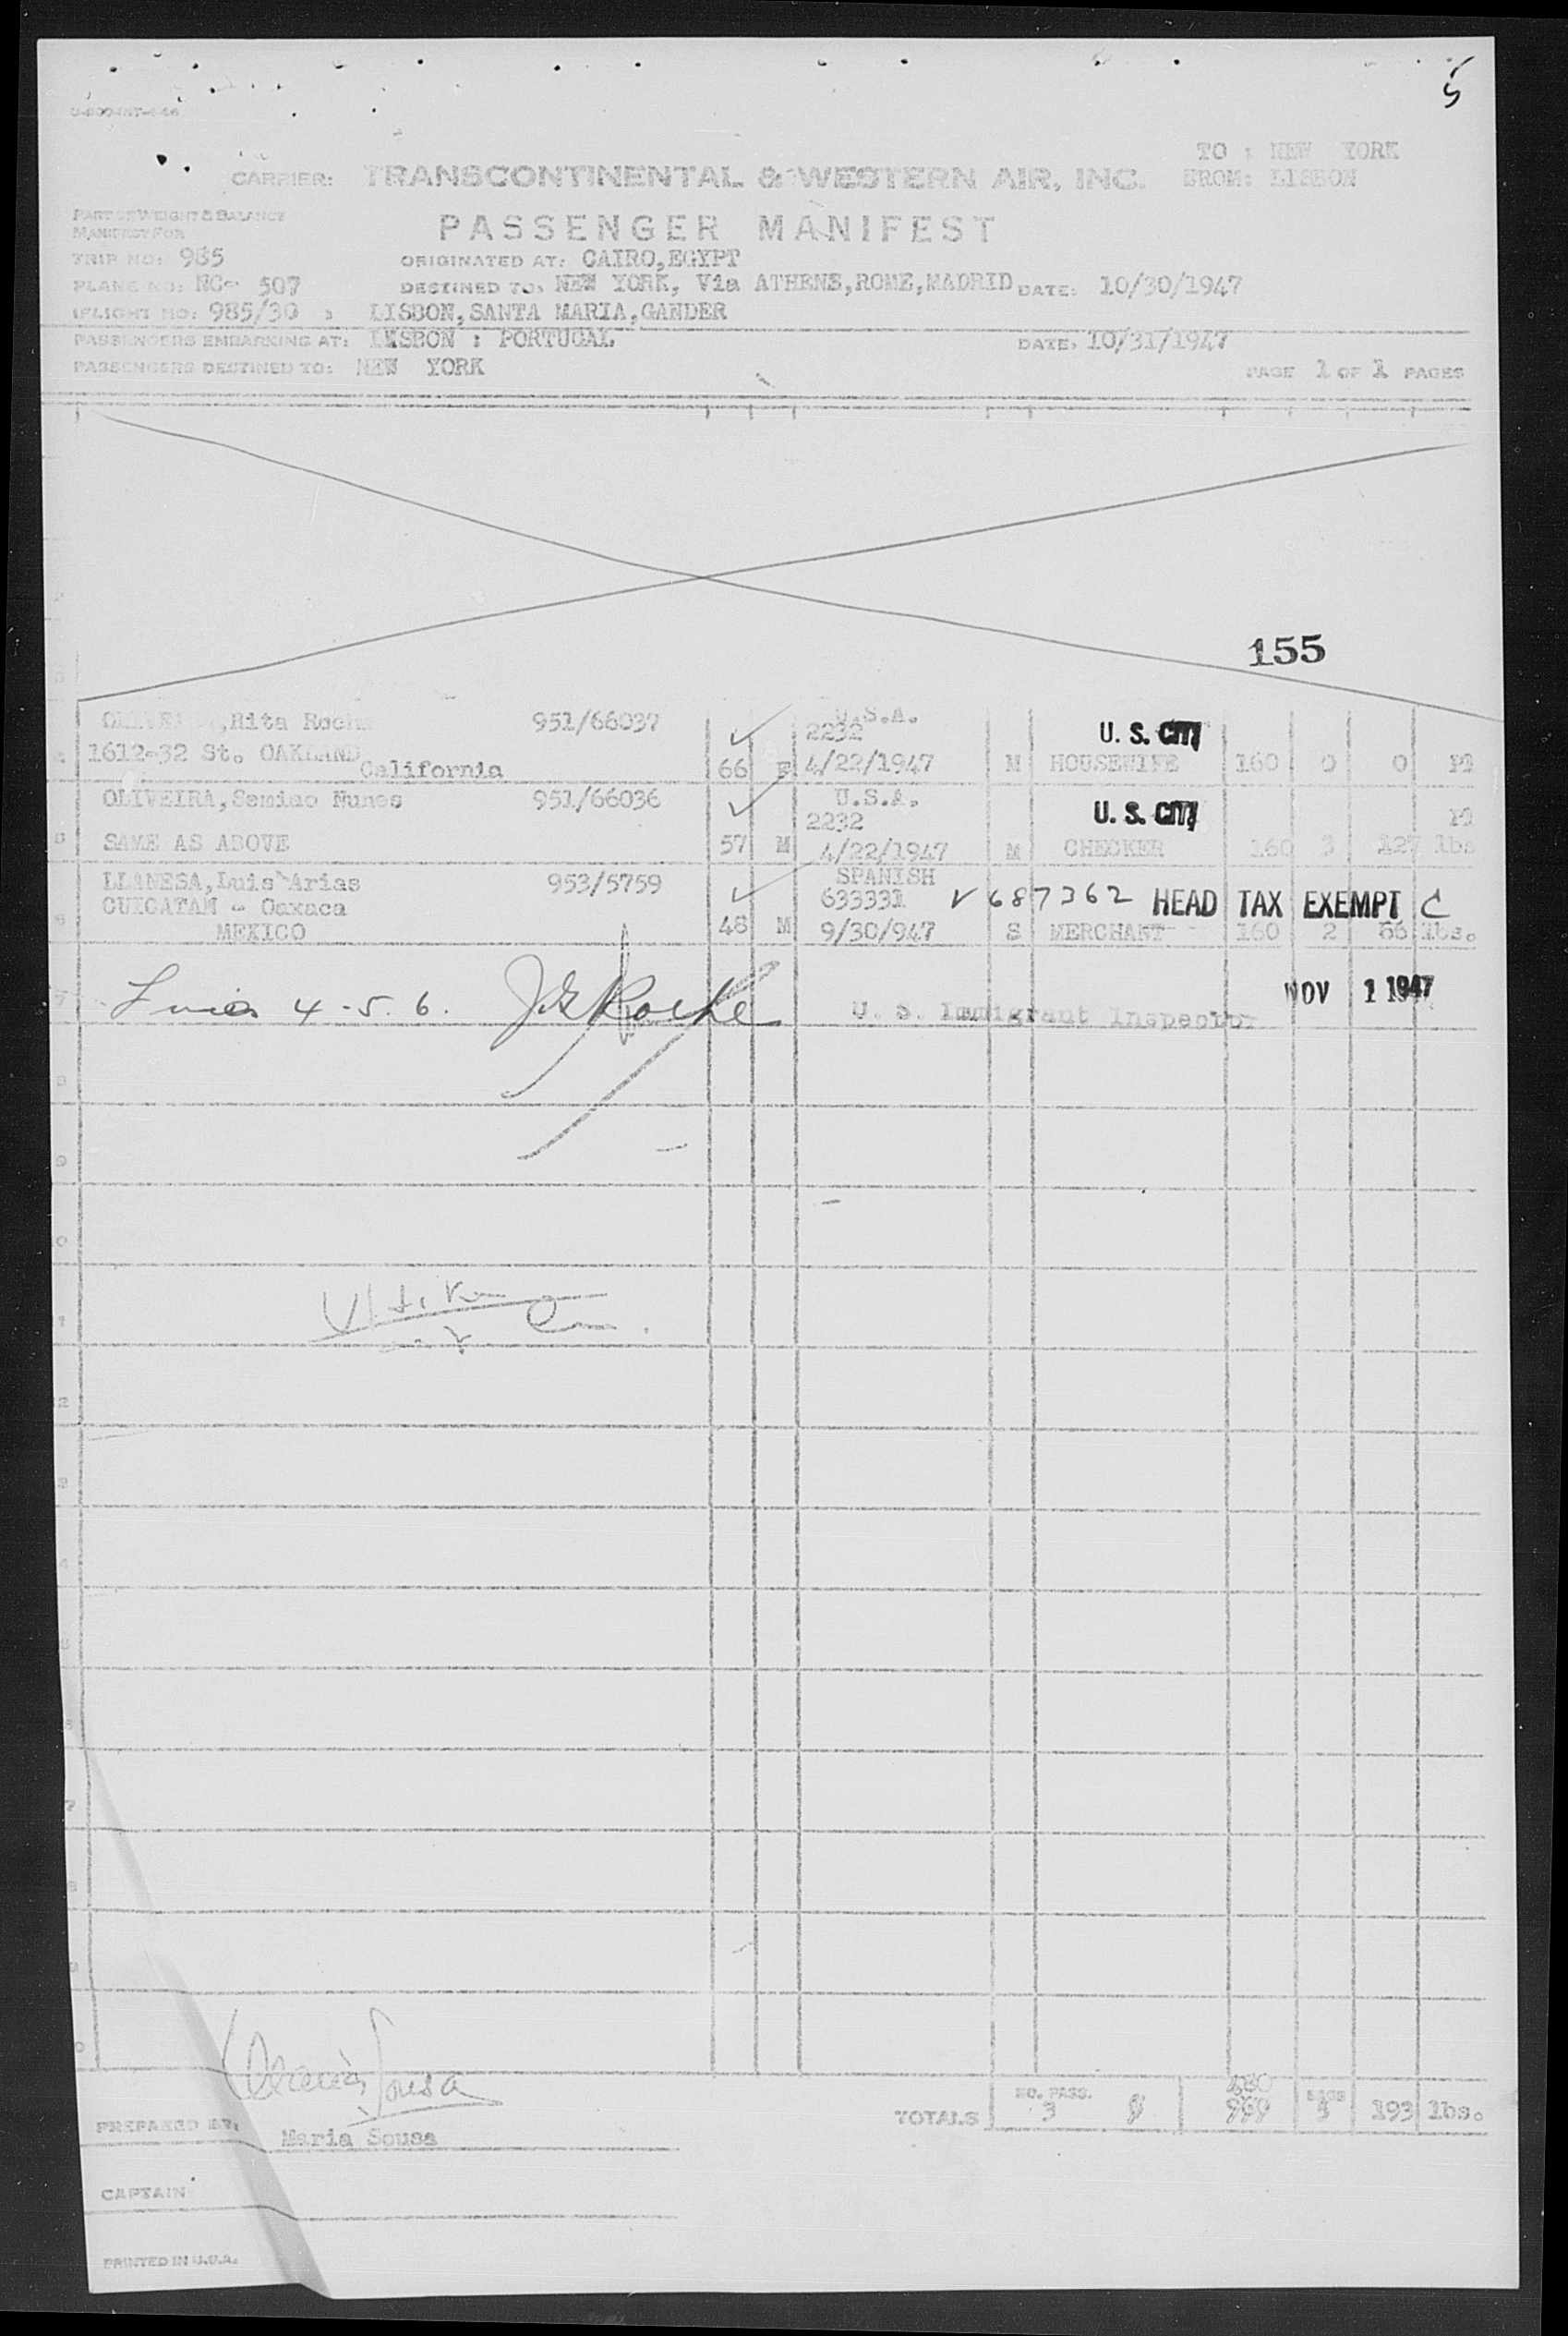 5
TO : NEW YORK
CARRIER: TRANSCONTINENTAL & WESTERN AIR, INC. FROM: LISBON
PART OF WEIGHT & BALANCE
MANIFEST FOR
PASSENGER MANIFEST
TRIP NO: 985 ORIGINATED AT: CAIRO,EGYPT
PLANE NO: NC- 507 DESTINED TO: NEW YORK, Via ATHENS,ROME,MADRID DATE: 10/30/1947
FLIGHT NO: 985/30 LISBON,SANTA MARIA,GANDER
PASSENGERS EMBARKING AT: LISBON : PORTUGAL DATE: 10/31/1947
PASSENGERS DESTINED TO: NEW YORK PAGE 1 OF 1 PAGES
155
,Rita 951/66037 U.S.A.
2232 U. S. CIT
1612-32 St. OAKLAND
California 66 F 4/22/1947 M HOUSEWIFE 160 0 0
OLIVEIRA, Nunes 951/66036 U.S.A.
2232 U. S. CIT
SAME AS ABOVE 57 M 4/22/1947 M CHECKER 160 3 127 lbs
LLANESA,Luis Arias 953/5759 SPANISH
CUICATAM - Oaxaca 633331 V 687362 HEAD TAX EXEMPT C
MEXICO 48 M 9/30/947 S MERCHANT 160 2 66 lbs.
NOV 1 1947
4-5.6. U. S. Immigrant Inspector
TOTALS NO. PASS. 3 BAGS 5 193 lbs.
PREPARED BY: Maria Sousa
CAPTAIN
PRINTED IN U.S.A.